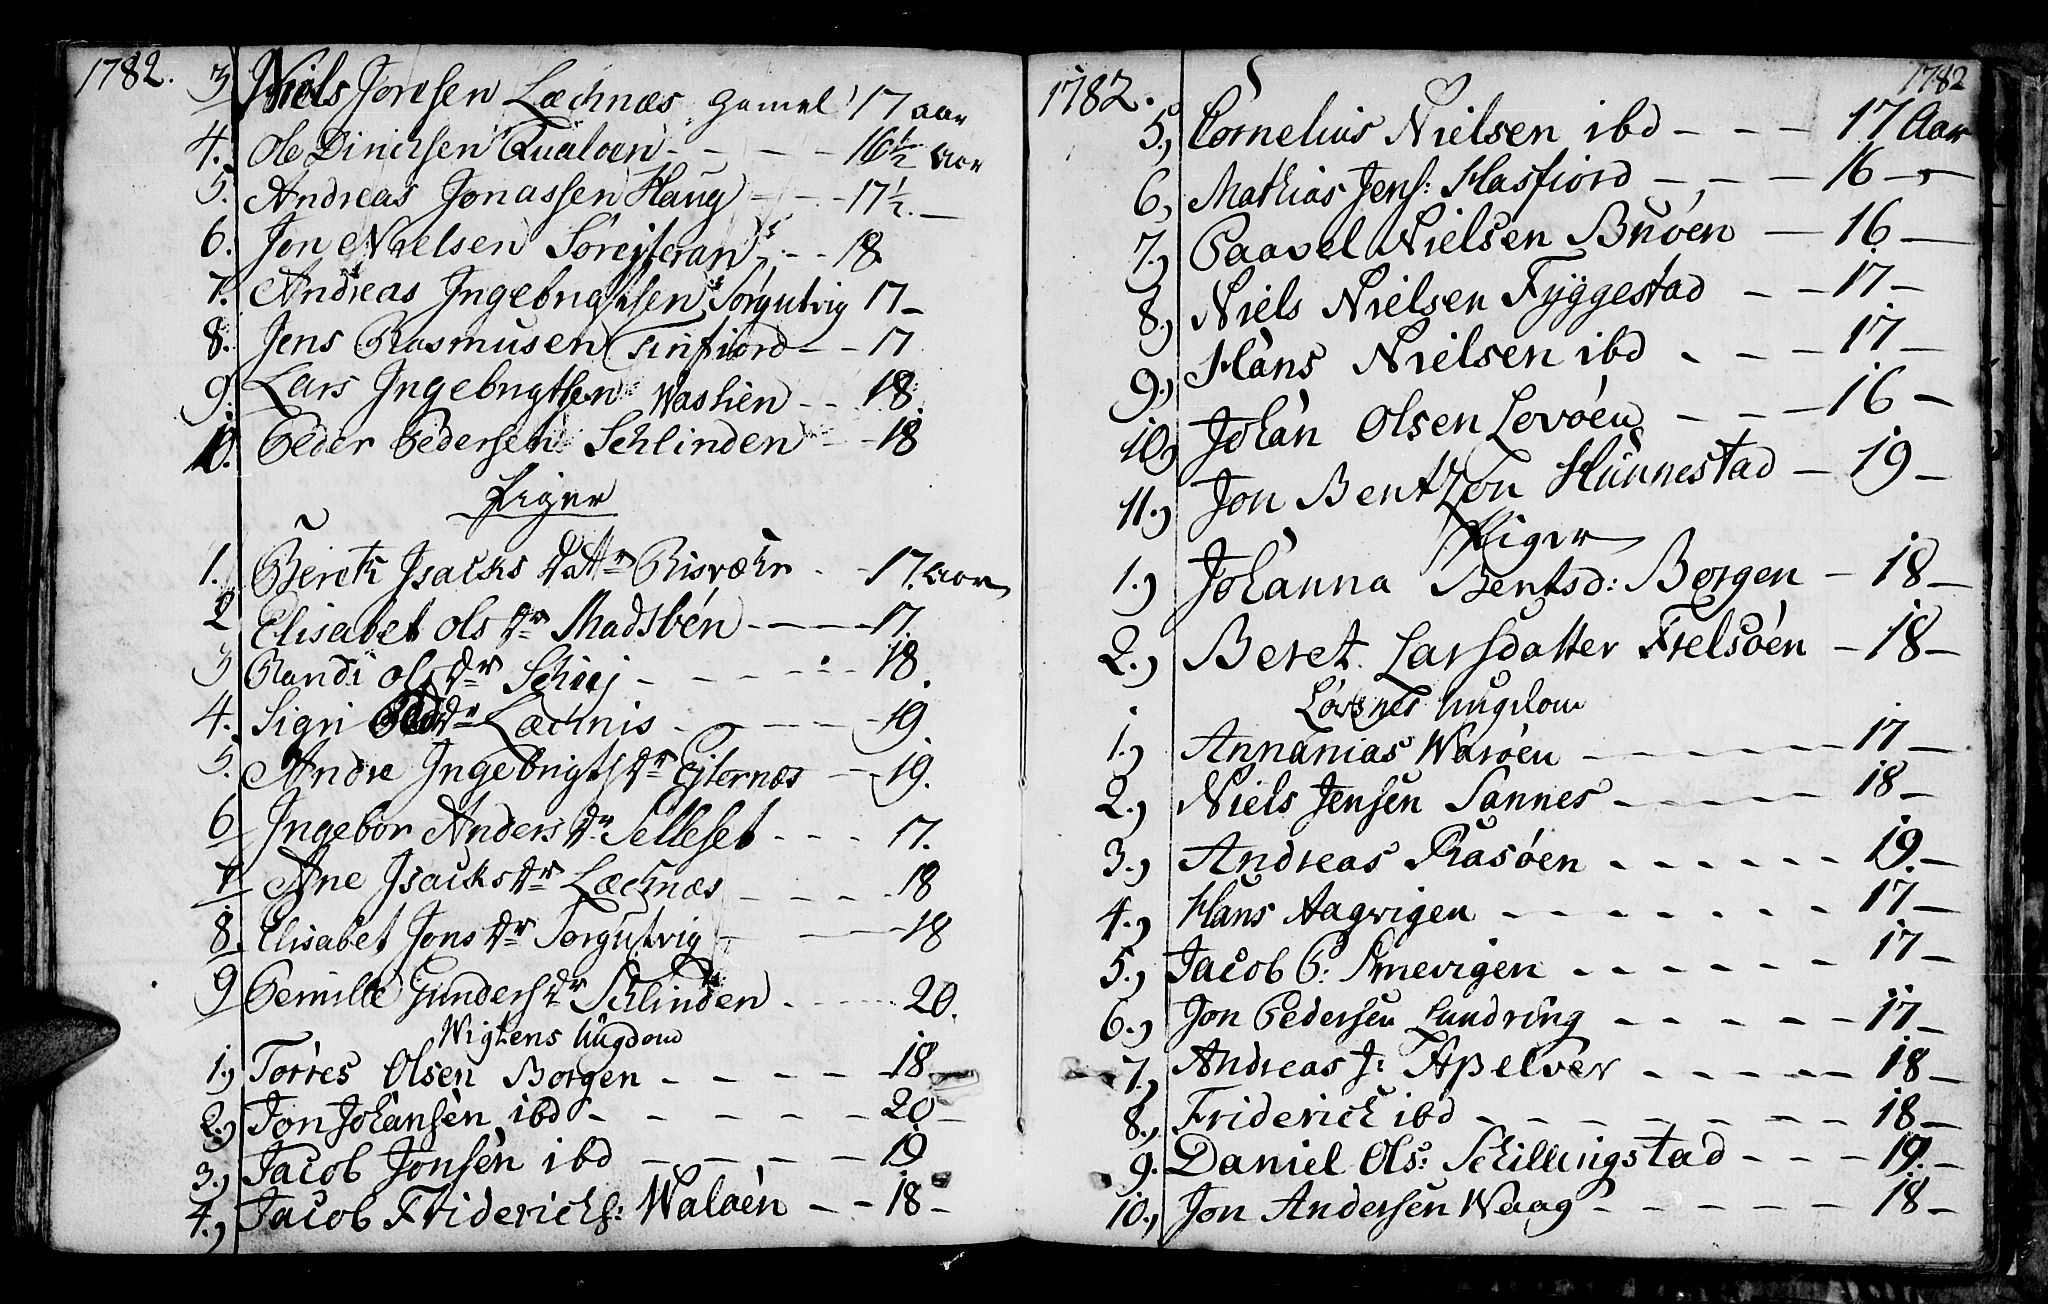 1782.
3 Niels Joresen Lechnæs gamel 17 aar
4. Ole Dinesen Qualoen - - - - 16 1/2 aar
5. Andreas Jonassen Haug - - - 17 1/2. -
6. Jon Nielsen - - 18
7. Andreas Ingebrigtsen Torgutvig 17 -
8. Jens Rasmusen Tinfiord - - 17
9. Lars Ingebrigtsen - - 18.
10. Peder Pedersen Schlinden - - 18
Piger
1. Beret Isachs Dattr Risvæhr - - 17. aar
2 Elisabet Ols Dr Madsbön - - - - 17.
3 Randi Ols Dr Schiej - - - - - 18.
4. Sigri Dr Lechnis - - - - 19.
5. Andre Ingebrigts Dr Ejternæs - - 19.
6 Ingebor Anders Dr Selleset - - - 17.
7 Ane Isachs Dr Lechnæs - - - - 18
8. Elisabet Jons Dr Torgutvig - - - 18
9 Pernille Gunders Dr Schlinden - - - 20.
Wigtens ungdom
1.) Torres Olsen Borgen - - - - - 18 -
2.) Jon Johansen ibd - - - - - - 20 -
3.) Jacob Jonsen ibd - - - - - 19
4.) Jacob Friderichs: Waloen - - 18 -
1782.
1782
5.) Cornelius Nielsen ibd - - - 17 Aar
6.) Mathias Jens: Hasfiord - - - 16 -
7.) Paavel Nielsen Buöen - 16 -
8.) Niels Nielsen Fyggestad - - 17 -
9.) Hans Nielsen ibd - - - 17 -
10.) Johan Olsen Lovöen - - - 16 -
11.) Jon Bentzon Hunnestad - 19 -
Piger
1.) Johanna Bentsd: Borgen - 18 -
2.) Beret Larsdatter Frelsöen - 18 -
ungdom
1.) Annanias Waröen - - - - - 17 -
2.) Niels Jensen Sannes - - - - - 18 -
3.) Andreas Rasöen - - - - - - 19 -
4.) Hans Aagvigen - - - - - - - 17 -
5.) Jacob P: Smevigen - - - - - - 17 -
6.) Jon Pedersen Lundring - - - - - 17 -
7.) Andreas J: Apelvær - - - - - 18 -
8.) Friderich ibd - - - - - - - 18 -
9. Daniel Ols: Schillingstad - - - 19. -
10.) Jon Andersen Waag - - - - - 18 -